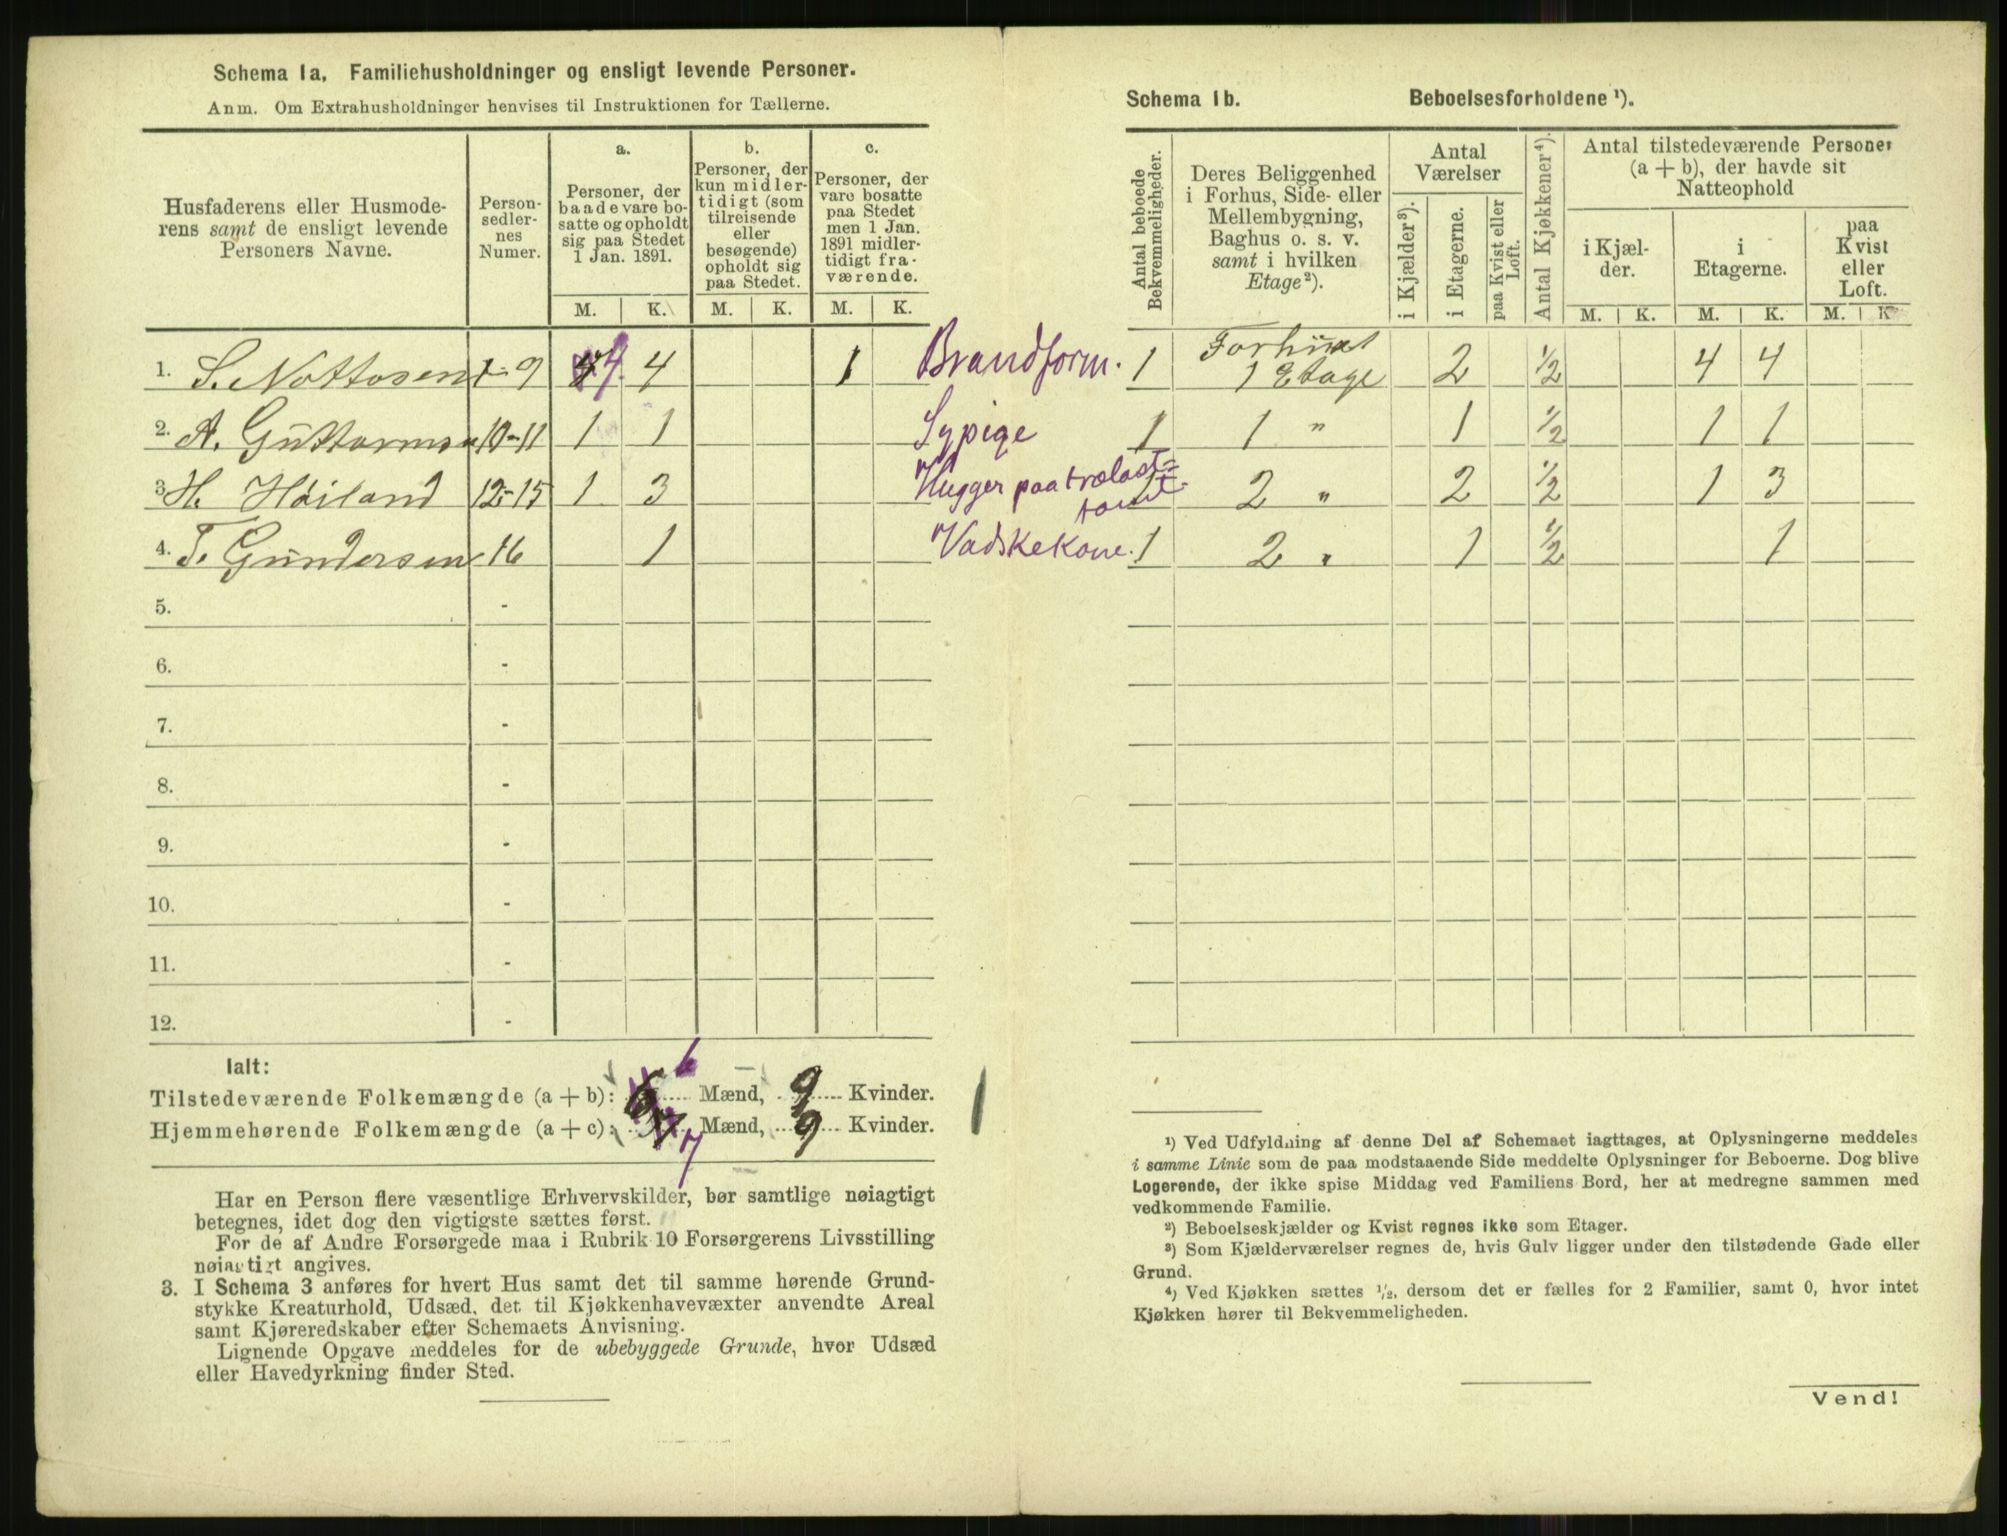 Schema 1a. Familiehusholdninger og ensligt levende Personer.
Anm. Om Extrahusholdninger henvises til Instruktionen for Tællerne.
Husfaderens eller Husmoderens samt de ensligt levende Personers Navne.
Person-sedlernes Numer.
a.
Personer, der baade vare bosatte og opholdt sig paa Stedet 1 Jan. 1891.
b.
Personer, der kun midlertidigt (som tilreisende eller besøgende) opholdt sig paa Stedet.
c.
Personer, der vare bosatte paa Stedet men 1 Jan. 1891 midlertidigt fraværende.
M. K. M. K. M. K.
1. S. Nottosen 1-9 4 4 1 Brandform.
2. A. Guttormsen 10-11 1 1 Sypige
3. H. Höiland 12-15 1 3 Hugger paa trælast-
tomt.
4. T. Gundersen 16 1 Vadskekone.
5. -
6. -
7. -
8. -
9. -
10. -
11. -
12. -
Ialt:
Tilstedeværende Folkemængde (a + b): 6 Mænd, 9 Kvinder.
Hjemmehørende Folkemængde (a + c): 7 Mænd, 9 Kvinder.
Har en Person flere væsentlige Erhvervskilder, bør samtlige nøiagtigt
betegnes, idet dog den vigtigste sættes først.
For de af Andre Forsørgede maa i Rubrik 10 Forsørgerens Livsstilling
nøiagtigt angives.
3. I Schema 3 anføres for hvert Hus samt det til samme hørende Grund-
stykke Kreaturhold, Udsæd, det til Kjøkkenhavevæxter anvendte Areal
samt Kjøreredskaber efter Schemaets Anvisning.
Lignende Opgave meddeles for de ubebyggede Grunde, hvor Udsæd
eller Havedyrkning finder Sted.
Schema 1b. Beboelsesforholdene ¹).
Antal beboede Bekvemmeligheder.
Deres Beliggenhed i Forhus, Side- eller Mellembygning, Baghus o. s. v. samt i hvilken Etage ²).
Antal Værelser
i Kjælder ³).
i Etagerne.
paa Kvist eller Loft.
Antal Kjøkkener ⁴).
Antal tilstedeværende Personer (a + b), der havde sit Natteophold
i Kjælder.
i Etagerne.
paa Kvist eller Loft.
M. K. M. K. M. K
1 Forhuset
1 Etage 2 ½ 4 4
1 1 " 1 ½ 1 1
2 " 2 ½ 1 3
1 2 " 1 ½ 1
¹) Ved Udfyldning af denne Del af Schemaet iagttages, at Oplysningerne meddeles
i samme Linie som de paa modstaaende Side meddelte Oplysninger for Beboerne. Dog blive
Logerende, der ikke spise Middag ved Familiens Bord, her at medregne sammen med
vedkommende Familie.
²) Beboelseskjælder og Kvist regnes ikke som Etager.
³) Som Kjælderværelser regnes de, hvis Gulv ligger under den tilstødende Gade eller
Grund.
⁴) Ved Kjøkken sættes ½, dersom det er fælles for 2 Familier, samt 0, hvor intet
Kjøkken hører til Bekvemmeligheden.
Vend!